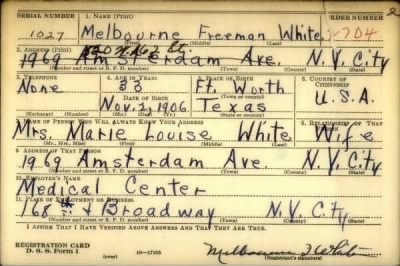 SERIAL NUMBER 1. NAME (Print) ORDER NUMBER
1027 Melbourne Freeman White 2704
(First) (Middle) (Last)
2. ADDRESS (Print)
1969 Amsterdam Ave. N.Y. City
(Number and street or R. F. D. number) (Town) (County) (State)
3. TELEPHONE 4. AGE IN YEARS 5. PLACE OF BIRTH 6. COUNTRY OF CITIZENSHIP
None 33 Ft. Worth
DATE OF BIRTH U.S.A.
Nov. 2, 1906 Texas
(Mo.) (Day) (Yr.) (State or country)
7. NAME OF PERSON WHO WILL ALWAYS KNOW YOUR ADDRESS 8. RELATIONSHIP OF THAT PERSON
Mrs. Marie Louise White Wife
(Mr., Mrs., Miss) (First) (Middle) (Last)
9. ADDRESS OF THAT PERSON
1969 Amsterdam Ave. N.Y. City
(Number and street or R. F. D. number) (Town) (County) (State)
10. EMPLOYER'S NAME
Medical Center
11. PLACE OF EMPLOYMENT OR BUSINESS
168 St & Broadway N.Y. City
(Number and street or R. F. D. number) (Town) (County) (State)
I AFFIRM THAT I HAVE VERIFIED ABOVE ANSWERS AND THAT THEY ARE TRUE.
REGISTRATION CARD
D. S. S. Form 1 (over) 16—17105 Melbourne F White